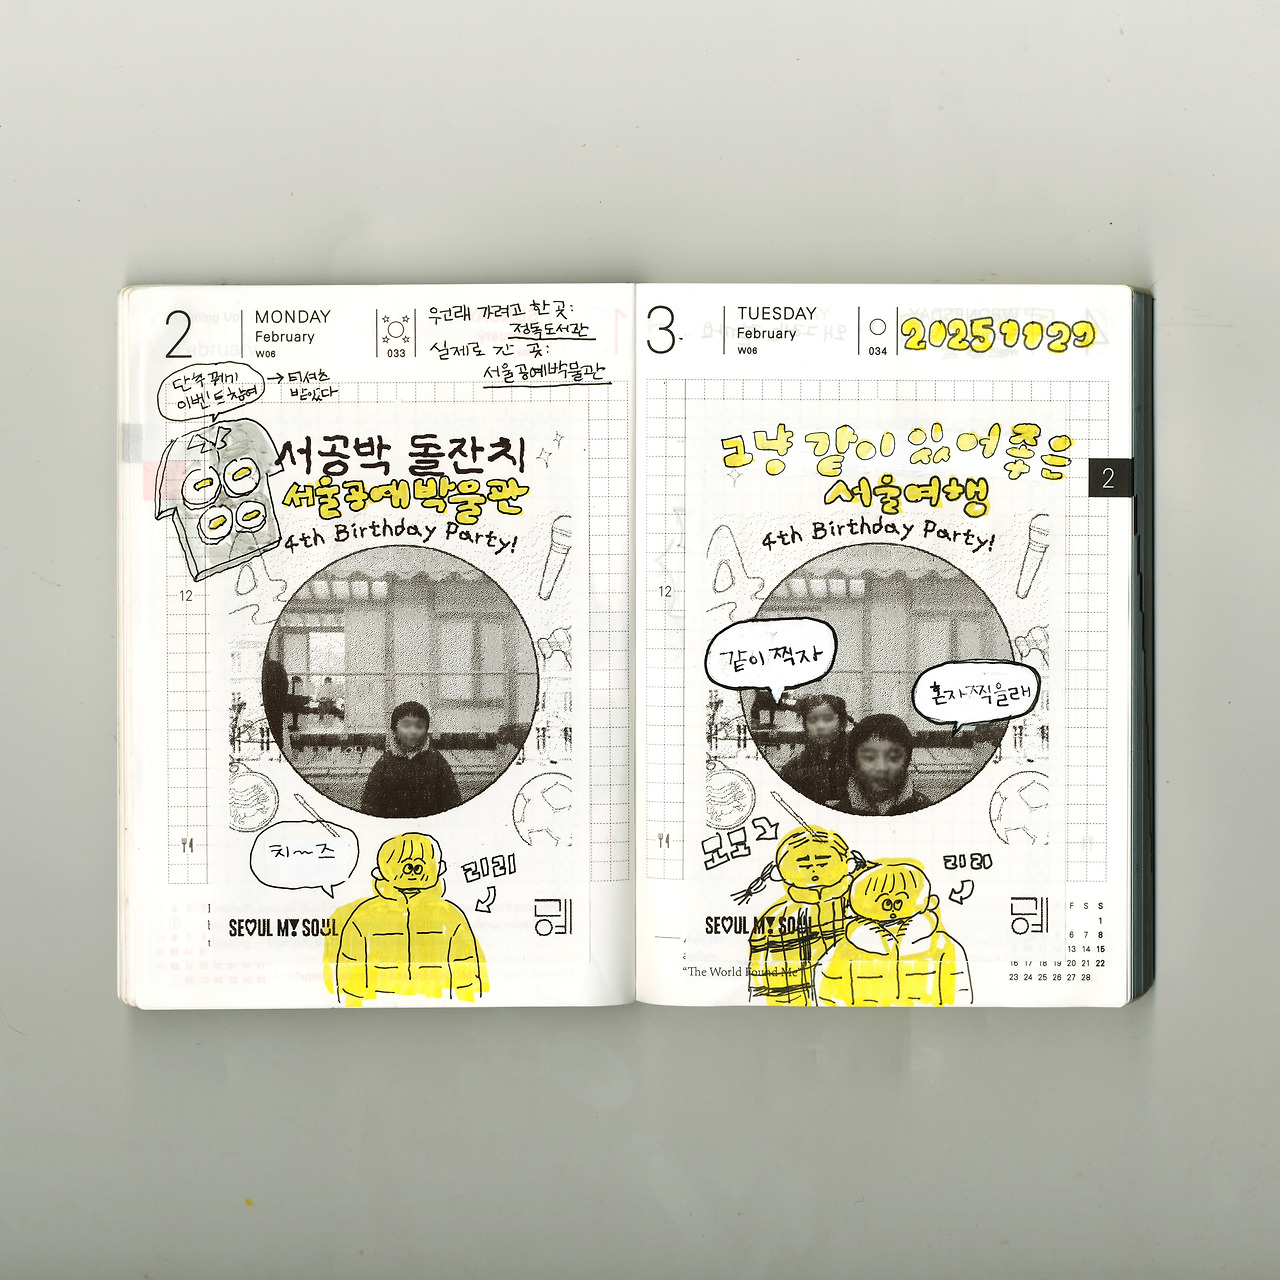 2
MONDAY
February
W06
033
우고래 가려고 한 곳:
정독도서관
실제로 간 곳:
서울공예박물관
이벤트참여
→ 티셔츠
받았다
서공박 돌잔치
서울공예박물관
4th Birthday Party!
12
치~즈
리리
SEOUL MY SOUL
3
TUESDAY
February
W06
034
20251029
그냥 같이 있어 좋은
서울여행
4th Birthday Party!
2
12
같이 찍자
혼자 찍을래
모모
리리
SEOUL MY SOUL
"The World Found Me"
F S S
1
6 7 8
13 14 15
16 17 18 19 20 21 22
23 24 25 26 27 28